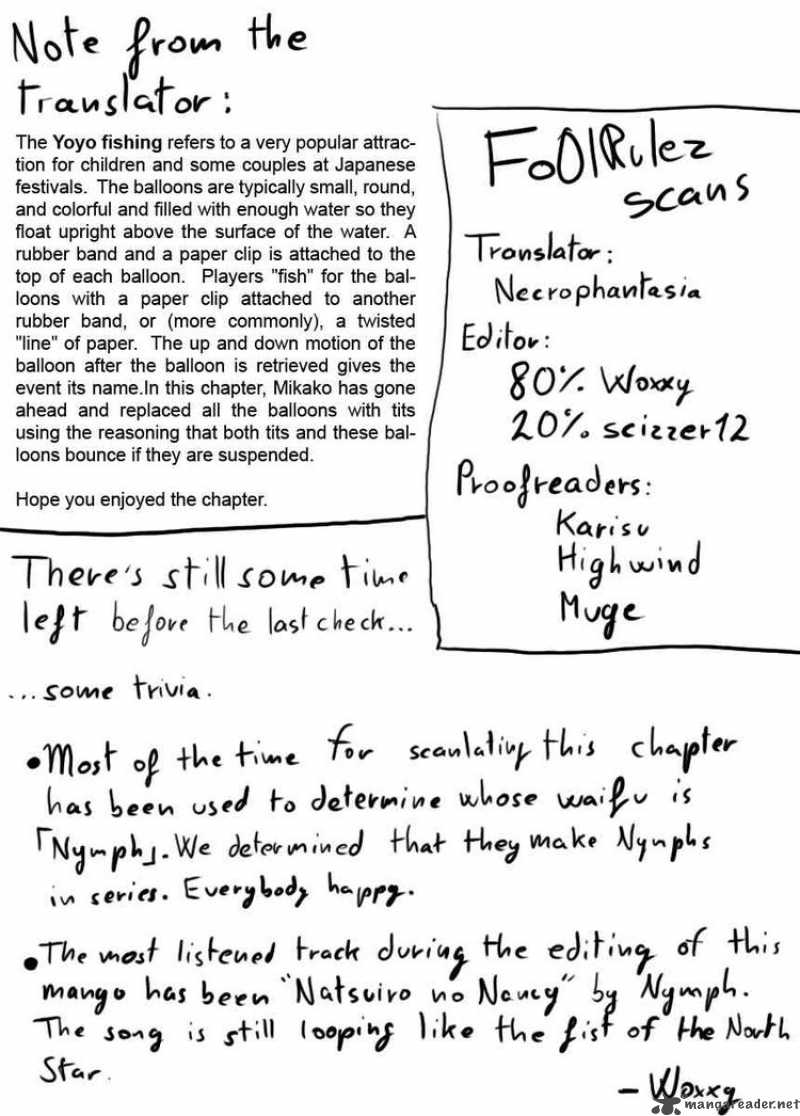 Note from the
translator:
The Yoyo fishing refers to a very popular attrac-
tion for children and some couples at Japanese
festivals. The balloons are typically small, round,
and colorful and filled with enough water so they
float upright above the surface of the water. A
rubber band and a paper clip is attached to the
top of each balloon. Players "fish" for the bal-
loons with a paper clip attached to another
rubber band, or (more commonly), a twisted
"line" of paper. The up and down motion of the
balloon after the balloon is retrieved gives the
event its name.In this chapter, Mikako has gone
ahead and replaced all the balloons with tits
using the reasoning that both tits and these bal-
loons bounce if they are suspended.
Hope you enjoyed the chapter.
FoOlRulez
scans
Translator:
Necrophantasia
Editor:
80% Woxxy
20% scizzer12
Proofreaders:
Karisu
Highwind
Muge
There's still some time
left before the last check...
...some trivia.
•Most of the time for scanlating this chapter
has been used to determine whose waifu is
「Nymph」. We determined that they make Nymphs
in series. Everybody happy.
•The most listened track during the editing of this
mango has been "Natsuiro no Nancy" by Nymph.
The song is still looping like the fist of the North
Star.
- Woxxy
mangareader.net